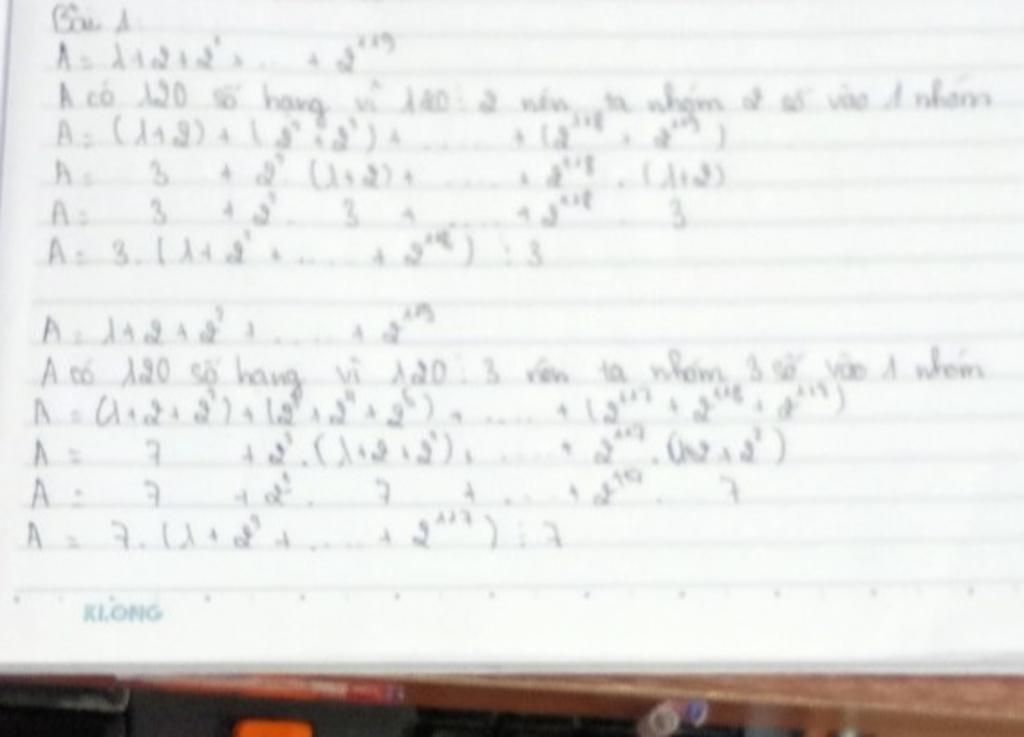 Bài 1
A = 1+2+2² + ... + 2¹¹⁹
A có 120 số hạng vì 120 ⋮ 2 nên ta nhóm 2 số vào 1 nhóm
A = (1+2) + (2² + 2³) + ..... + (2¹¹⁸ + 2¹¹⁹)
A = 3 + 2² (1+2) + ..... + 2¹¹⁸ . (1+2)
A = 3 + 2² . 3 + ..... + 2¹¹⁸ . 3
A = 3 . (1+ 2² + .... + 2¹¹⁸) ⋮ 3
A = 1+2+2² + ..... + 2¹¹⁹
A có 120 số hạng vì 120 ⋮ 3 nên ta nhóm 3 số vào 1 nhóm
A = (1+2+2²) + (2³ + 2⁴ + 2⁵) + ..... + (2¹¹⁷ + 2¹¹⁸ + 2¹¹⁹)
A = 7 + 2³ . (1+2+2²) + ..... + 2¹¹⁷ . (1+2+2²)
A = 7 + 2³ . 7 + ... + 2¹¹⁷ . 7
A = 7 . (1+ 2³ + ..... + 2¹¹⁷) ⋮ 7
KLONG